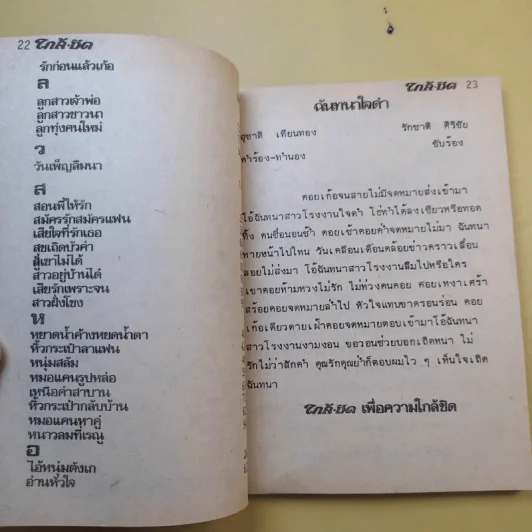 22 ใกล้-ชิด
รักก่อนแล้วเก้อ
ล
ลูกสาวเจ้าพ่อ
ลูกสาวชาวนา
ลูกทุ่งคนใหม่
ว
วันเพ็ญลืมนา
ส
สอนพี่ให้รัก
สมัครรักสมัครแฟน
เสียใจที่รักเธอ
สุขเถิดบัวคำ
สู้เขาไม่ได้
สาวอยู่บ้านได๋
เสียรักเพราะจน
สาวฝั่งโขง
ห
หยาดน้ำค้างหยดน้ำตา
หิ้วกระเป๋าลาแฟน
หนุ่มสลัม
หมอแคนรูปหล่อ
เหนือคำสาบาน
หิ้วกระเป๋ากลับบ้าน
หมอแคนหาคู่
หนาวลมที่เรณู
อ
ไอ้หนุ่มตังเก
อ่านหัวใจ
ใกล้-ชิด 23
ฉันทนาใจดำ
สุชาติ เทียนทอง รักชาติ ศิริชัย
คำร้อง-ทำนอง ขับร้อง
คอยเก้อจนสายไม่มีจดหมายส่งเข้ามา
โอ้ฉันทนาสาวโรงงานใจดำ โธ่ทำได้ลงเชียวหรือทอด
ทิ้ง คนชื่อนอนช้ำ คอยเช้าคอยค่ำจดหมายไม่มา ฉันทนา
หายหน้าไปไหน วันเคลื่อนเดือนคล้อยข่าวคราวเลื่อน
ลอยไม่ส่งมา โอ้ฉันทนาสาวโรงงานลืมไปหรือใคร
เขาคอยห้ามหวงไม่รัก ไม่ห่วงคนคอย คอยเหงาเศร้า
สร้อยคอยจดหมายลำไป หัวใจแทบขาดรอนร่อน คอย
เก้อเดียวดายเฝ้าคอยจดหมายตอบเข้ามาโอ้ฉันทนา
สาวโรงงานงามงอน ขอวอนช่วยบอกเถิดหนา ไม่
รักไม่ว่าสักคำ คุณรักคุณย้ำก็ตอบผมไว ๆ เห็นใจเถิด
ฉันทนา
ใกล้-ชิด เพื่อความใกล้ชิด